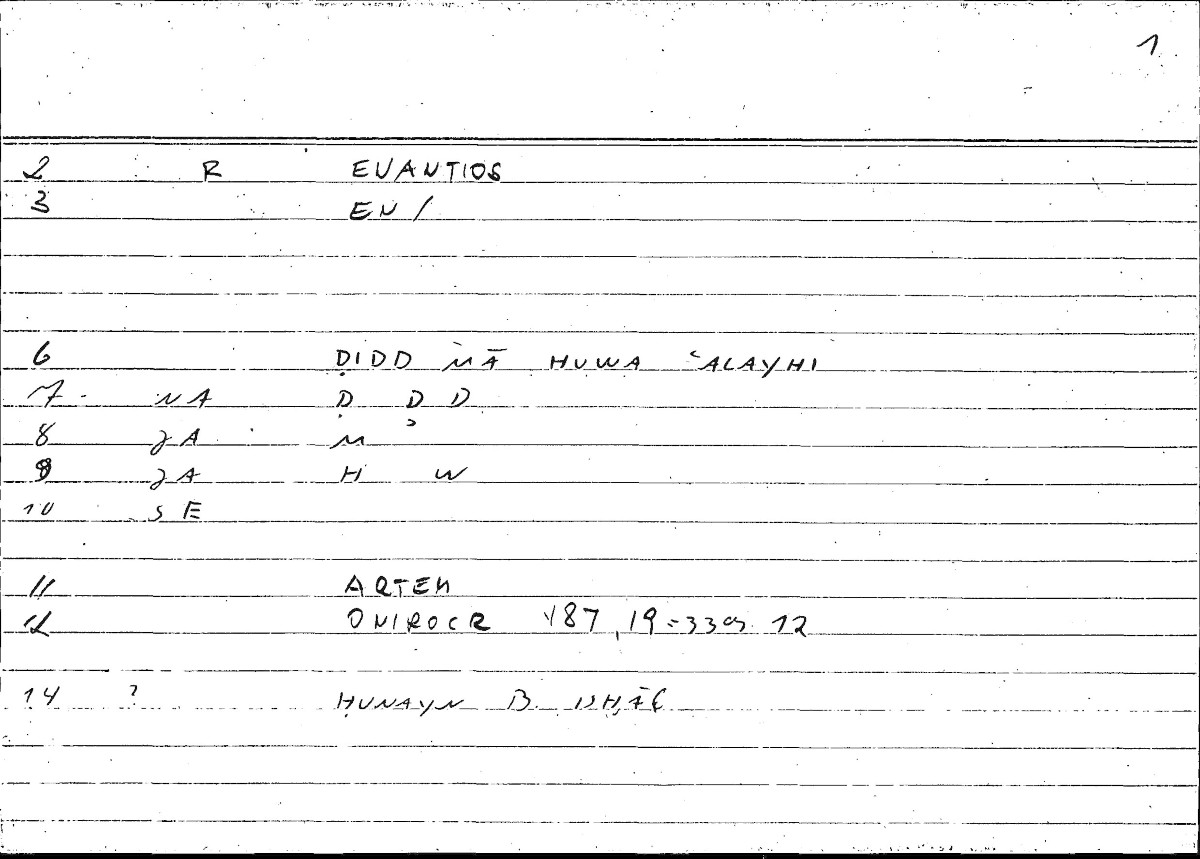 1
2 R EUANTIOS
3 EN /
6 ḌIDD MĀ HUWA ʿALAYHI
7 NA Ḍ D D
8 JA M ʾ
9 JA H W
10 SE
11 ARTEM
12 ONIROCR 187,19 = 12
14 ? ḤUNAYN B.